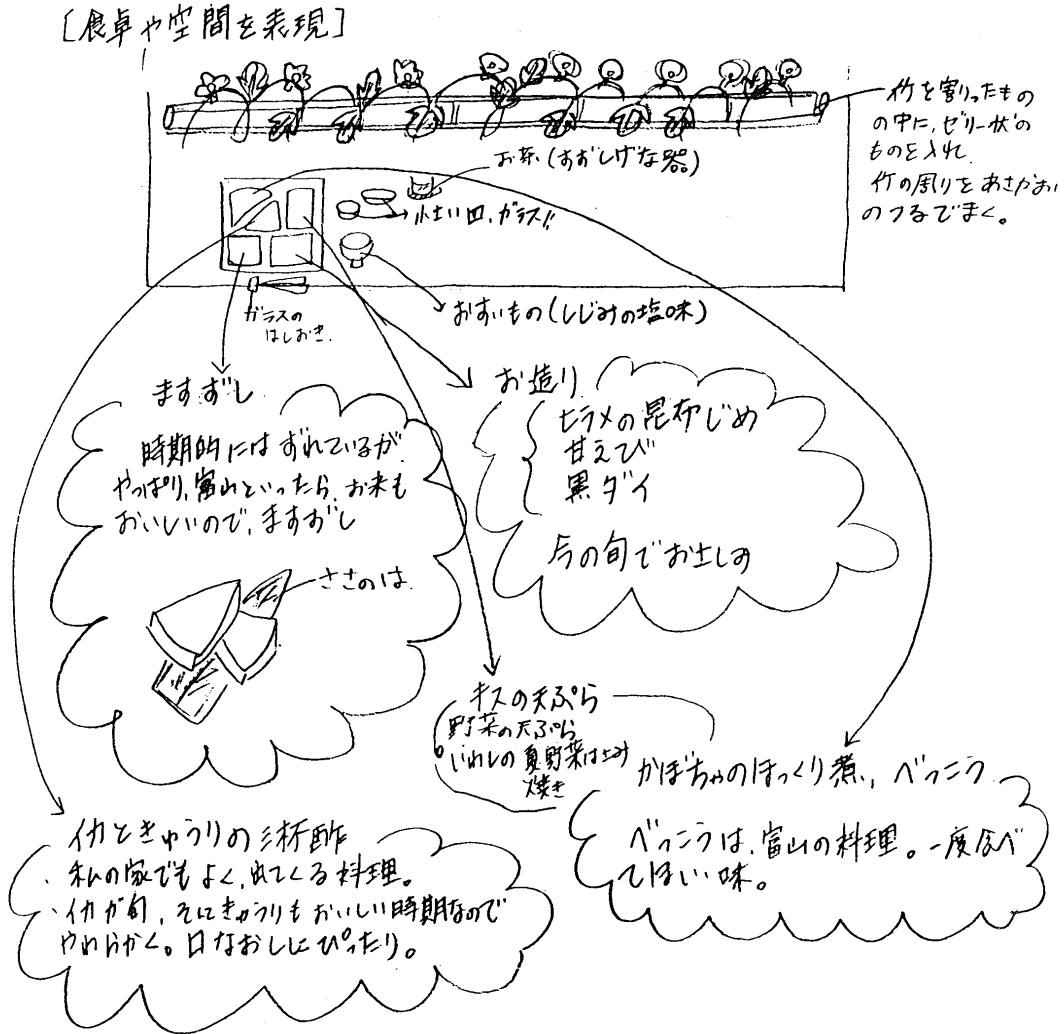 [食卓や空間を表現]
竹を割ったもの
の中に、ゼリー状の
ものを入れ
竹の周りをあさがお
のつるでまく。
お茶(すずしげな器)
小さい皿、ガラス!!
ガラスの
はしおき
おすいもの(しじみの塩味)
ますずし
時期的にはずれているが、
やっぱり、富山といったら、お米も
おいしいので、ますずし
ささのは
お造り
ヒラメの昆布じめ
甘えび
黒ダイ
今の旬でおさしみ
キスの天ぷら
野菜の天ぷら
いわしの夏野菜はさみ
焼き
かぼちゃのほっくり煮、べっこう
べっこうは、富山の料理。一度食べ
てほしい味。
イカときゅうりの三杯酢
・私の家でもよく、出てくる料理。
・イカが旬、そにきゅうりもおいしい時期なので
やわらかく。口なおしにぴったり。